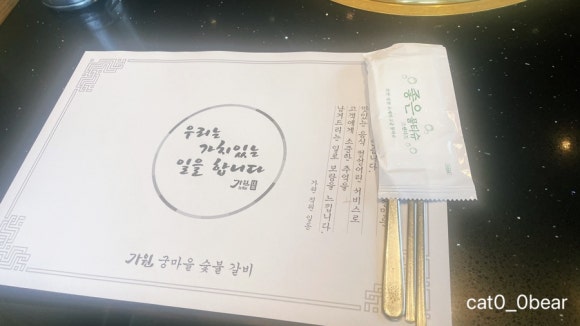 우리는
가치있는
일을 합니다
가원
맛있는 음식 정성어린 서비스로
고객에게 소중한 추억을
남겨드리는 일로 보람을 느낍니다.
가원 직원 일동
가원 궁마을 숯불갈비
좋은 물티슈
cat0_0bear